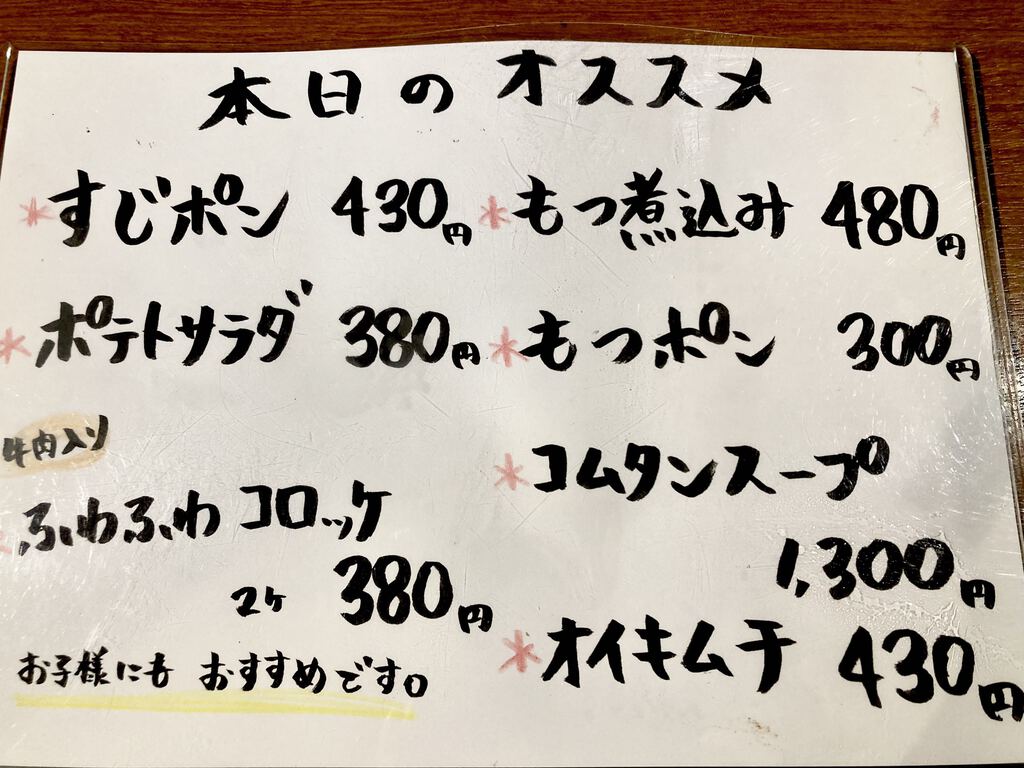 本日のオススメ
*すじポン 430円
*ポテトサラダ 380円
牛肉入り
*ふわふわコロッケ
2ヶ 380円
お子様にも おすすめです。
*もつ煮込み 480円
*もつポン 300円
*コムタンスープ
1,300円
*オイキムチ 430円